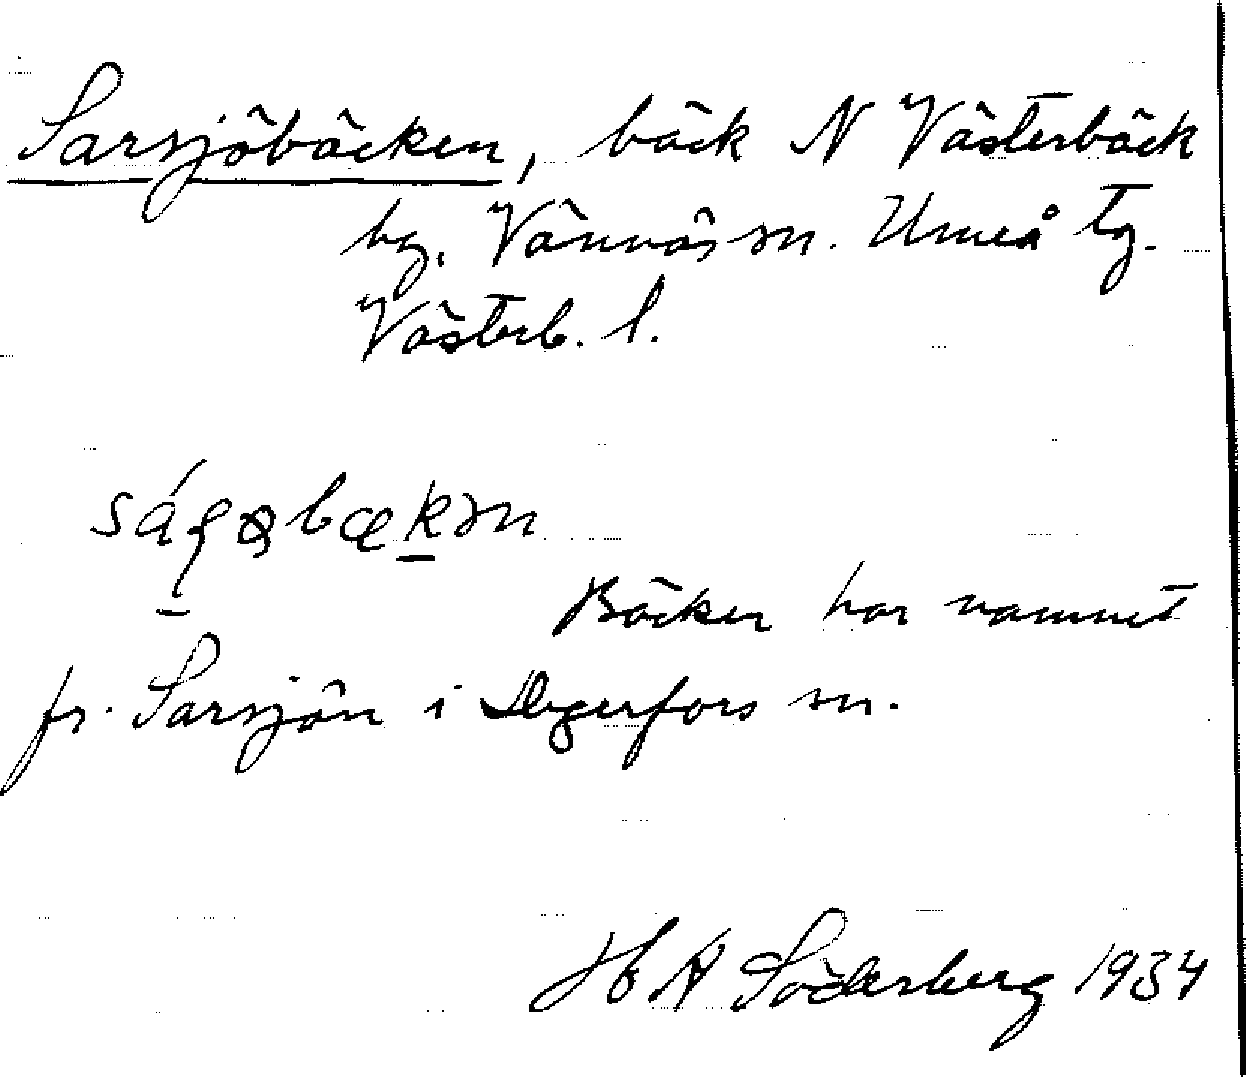 Sarsjöbäcken, bäck N Västerbäck
by, Vännäs sn. Umeå tg.
Västerb. l.
Bäcken har namnet
fr. Sarsjön i Degerfors sn.
H A Söderberg 1934